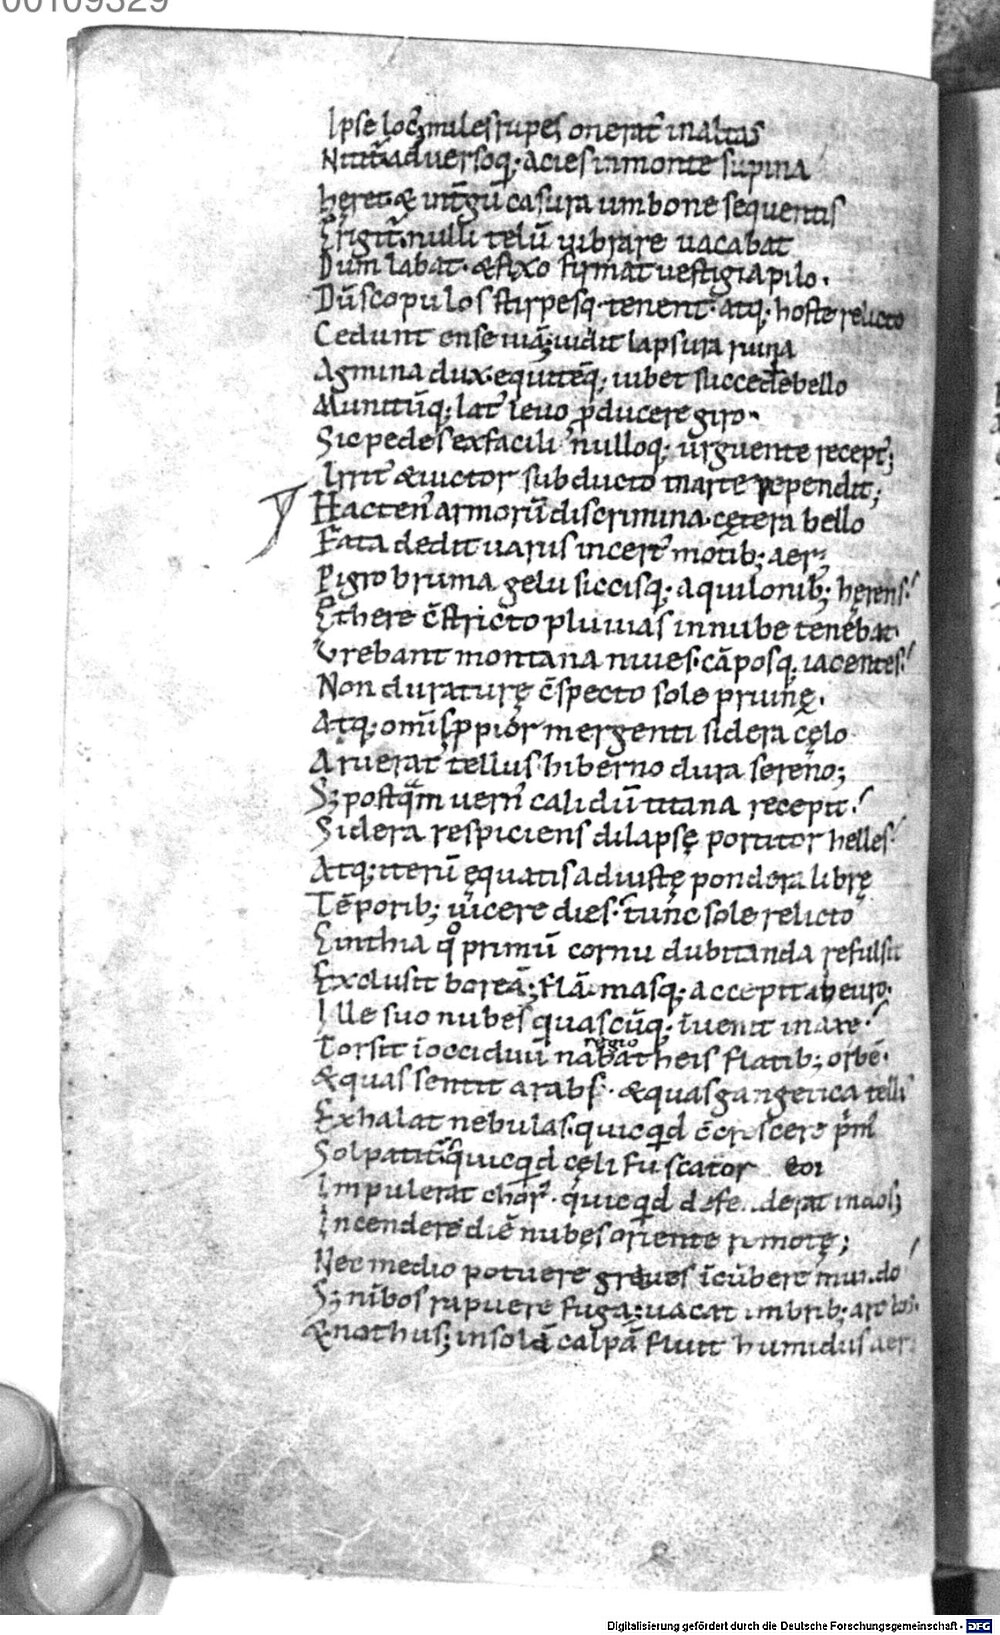 00109329
Ipse loc᷒ miles rupes onerat᷒ in altas
Nitit᷑ adversoq; acies in monte supina
heret· & in t̄gū casura umbone sequentis
Erigit᷑. nulli telū vibrare vacabat
Dum labat· & fixo firmat vestigia pilo.
Dū scopulos stirpesq; tenent· atq; hoste relicto
Cedunt ense viā; vidit lapsura ruina
Agmina dux· equitēq; iubet succedere bello
Munitūq; lat᷒ levo p̱ducere giro·
Sic pedes ex facili nulloq; urguente recept᷒;
Irrit᷒ & victor subducto marte pependit;
Hacten᷒ armorū discrimina· cętera bello
Fata dedit varius incert᷒ motib; aer;
Pigro bruma gelu siccisq; aquilonib; hęrens
Ęthere c̄stricto pluvias in nube tenebat·
Urebant montana nives· cāposq; iacentes
Non duraturę c̄specto sole pruinę.
Atq; om̄is p̱pior mergenti sidera cęlo
Aruerat tellus hiberno dura sereno;
S; postq̄m vern᷒ calidū titana recepit
Sidera respiciens dilapsę portitor helles
Atq; iterū ęquatis ad iustę pondera librę
Tēporib; vicere dies· tunc sole relicto
Cinthia qͦ primū cornu dubitanda refulsit
Exclusit boreā; flāmasq; accepit ab euro.
Ille suo nubes quascūq; īvenit in axe
Torsit ī occiduū nabatheis flatib; orbē.
regio
& quas sentit arabs· & quas gangetica tell᷒
Exhalat nebulas· quicq̇d c̄crescere p̄m᷒
Sol patit᷑· quicq̇d cęli fuscator eoi
Impulerat chor᷒· quicq̇d defenderat indos;
Incendere diē nubes oriente remotę;
Nec medio potuere graves īcūbere mundo
S; nībos rapuere fuga; vacat imbrib; arctos·
& nothus; in solā calpā fluit humidus aer
Digitalisierung gefördert durch die Deutsche Forschungsgemeinschaft - DFG